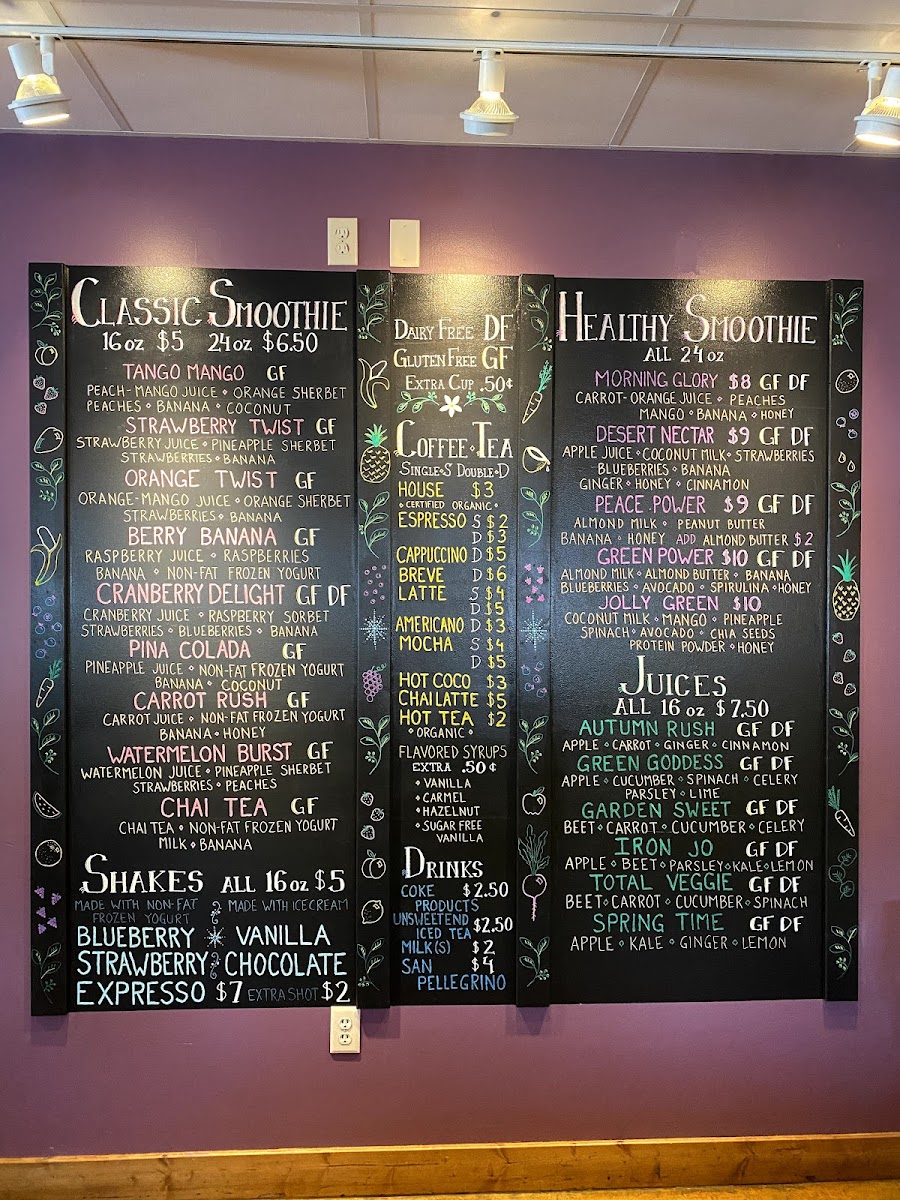 CLASSIC SMOOTHIE
16oz $5 24oz $6.50
TANGO MANGO GF
PEACH-MANGO JUICE ◦ ORANGE SHERBET
PEACHES ◦ BANANA ◦ COCONUT
STRAWBERRY TWIST GF
STRAWBERRY JUICE ◦ PINEAPPLE SHERBET
STRAWBERRIES ◦ BANANA
ORANGE TWIST GF
ORANGE-MANGO JUICE ◦ ORANGE SHERBET
STRAWBERRIES ◦ BANANA
BERRY BANANA GF
RASPBERRY JUICE ◦ RASPBERRIES
BANANA ◦ NON-FAT FROZEN YOGURT
CRANBERRY DELIGHT GF DF
CRANBERRY JUICE ◦ RASPBERRY SORBET
STRAWBERRIES ◦ BLUEBERRIES ◦ BANANA
PINA COLADA GF
PINEAPPLE JUICE ◦ NON-FAT FROZEN YOGURT
BANANA ◦ COCONUT
CARROT RUSH GF
CARROT JUICE ◦ NON-FAT FROZEN YOGURT
BANANA ◦ HONEY
WATERMELON BURST GF
WATERMELON JUICE ◦ PINEAPPLE SHERBET
STRAWBERRIES ◦ PEACHES
CHAI TEA GF
CHAI TEA ◦ NON-FAT FROZEN YOGURT
MILK ◦ BANANA
SHAKES ALL 16oz $5
MADE WITH NON-FAT FROZEN YOGURT
MADE WITH ICE CREAM
BLUEBERRY VANILLA
STRAWBERRY CHOCOLATE
EXPRESSO $7 EXTRA SHOT $2
DAIRY FREE DF
GLUTEN FREE GF
EXTRA CUP .50¢
COFFEE ◦ TEA
SINGLE◦S DOUBLE◦D
HOUSE $3
◦ CERTIFIED ORGANIC ◦
ESPRESSO S $2
D $3
CAPPUCCINO D $5
BREVE D $6
LATTE S $4
D $5
AMERICANO D $3
MOCHA S $4
D $5
HOT COCO $3
CHAI LATTE $5
HOT TEA $2
◦ ORGANIC ◦
FLAVORED SYRUPS
EXTRA .50¢
◦ VANILLA
◦ CARMEL
◦ HAZELNUT
◦ SUGAR FREE
VANILLA
DRINKS
COKE $2.50
PRODUCTS
UNSWEETEND $2.50
ICED TEA
MILK(S) $2
SAN $4
PELLEGRINO
HEALTHY SMOOTHIE
ALL 24 oz
MORNING GLORY $8 GF DF
CARROT-ORANGE JUICE ◦ PEACHES
MANGO ◦ BANANA ◦ HONEY
DESERT NECTAR $9 GF DF
APPLE JUICE ◦ COCONUT MILK ◦ STRAWBERRIES
BLUEBERRIES ◦ BANANA
GINGER ◦ HONEY ◦ CINNAMON
PEACE POWER $9 GF DF
ALMOND MILK ◦ PEANUT BUTTER
BANANA ◦ HONEY ADD ALMOND BUTTER $2
GREEN POWER $10 GF DF
ALMOND MILK ◦ ALMOND BUTTER ◦ BANANA
BLUEBERRIES ◦ AVOCADO ◦ SPIRULINA ◦ HONEY
JOLLY GREEN $10
COCONUT MILK ◦ MANGO ◦ PINEAPPLE
SPINACH ◦ AVOCADO ◦ CHIA SEEDS
PROTEIN POWDER ◦ HONEY
JUICES
ALL 16 oz $7.50
AUTUMN RUSH GF DF
APPLE ◦ CARROT ◦ GINGER ◦ CINNAMON
GREEN GODDESS GF DF
APPLE ◦ CUCUMBER ◦ SPINACH ◦ CELERY
PARSLEY ◦ LIME
GARDEN SWEET GF DF
BEET ◦ CARROT ◦ CUCUMBER ◦ CELERY
IRON JO GF DF
APPLE ◦ BEET ◦ PARSLEY ◦ KALE ◦ LEMON
TOTAL VEGGIE GF DF
BEET ◦ CARROT ◦ CUCUMBER ◦ SPINACH
SPRING TIME GF DF
APPLE ◦ KALE ◦ GINGER ◦ LEMON